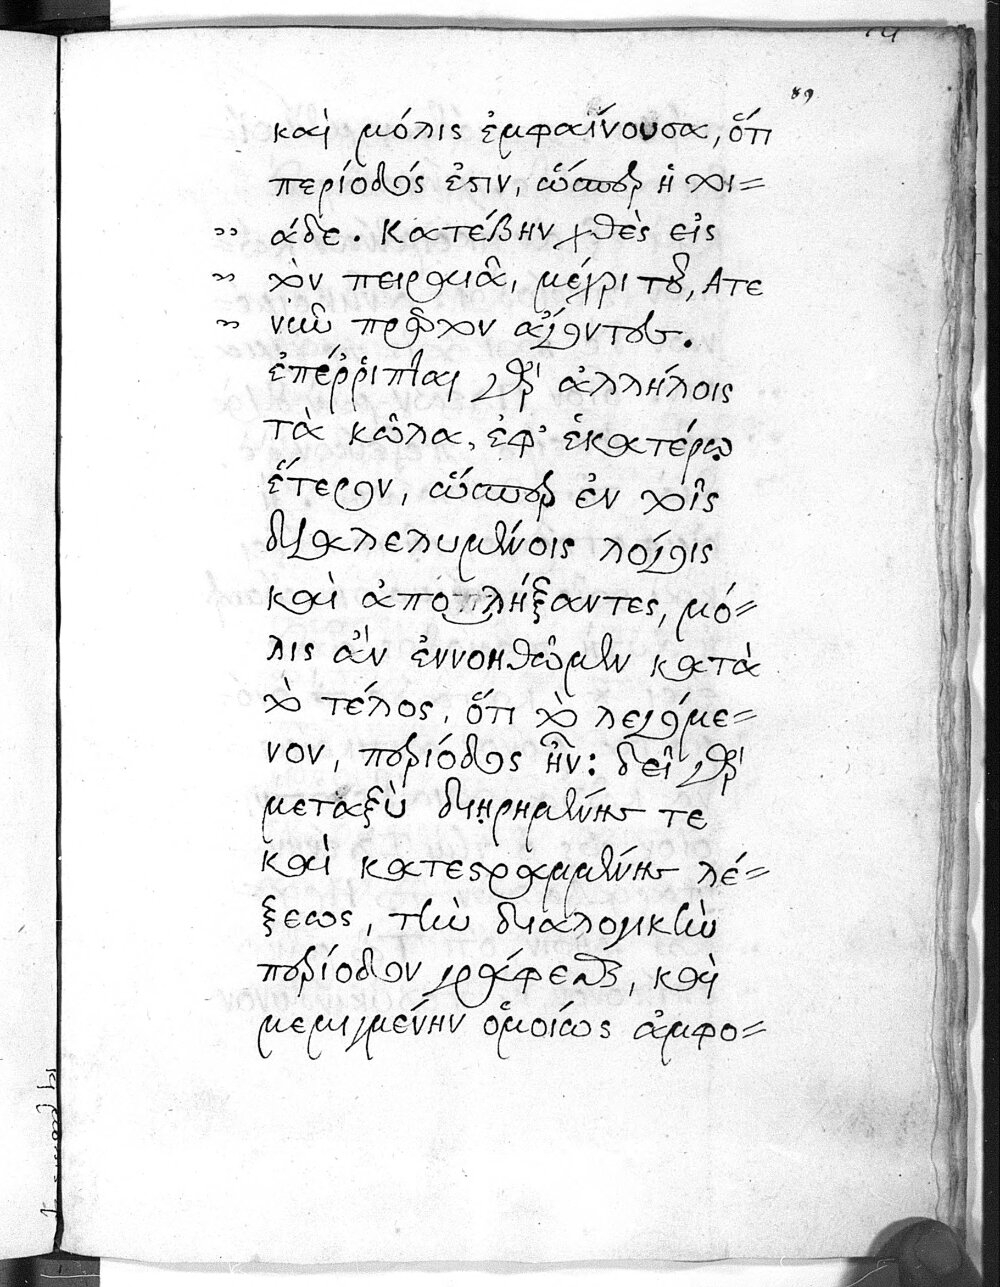 89
καὶ μόλις ἐμφαίνουσα, ὅτι
περίοδός ἐστιν, ὥσπερ ἡ τοι=
άδε. Κατέβην χθὲς εἰς
τὸν πειραιᾶ, μέχρι τοῦ, Ατε
νῶν πρῶτον ἄγοντος.
ἐπέῤῥιπται γὰρ ἀλλήλοις
τὰ κῶλα, ἐφ' ἑκατέρῳ
ἕτερον, ὥσπερ ἐν τοῖς
διαλελυμένοις λόγοις
καὶ ἀπολήξαντες, μό=
λις ἂν ἐννοηθῶμεν κατὰ
τὸ τέλος, ὅτι τὸ λεγόμε=
νον, περίοδος ἦν: δεῖ γὰρ
μεταξὺ διῃρημένης τε
καὶ κατεστραμμένης λέ=
ξεως, τὴν διαλογικὴν
περίοδον γράφεσθαι, καὶ
μεμιγμένην ὁμοίως ἀμφο=